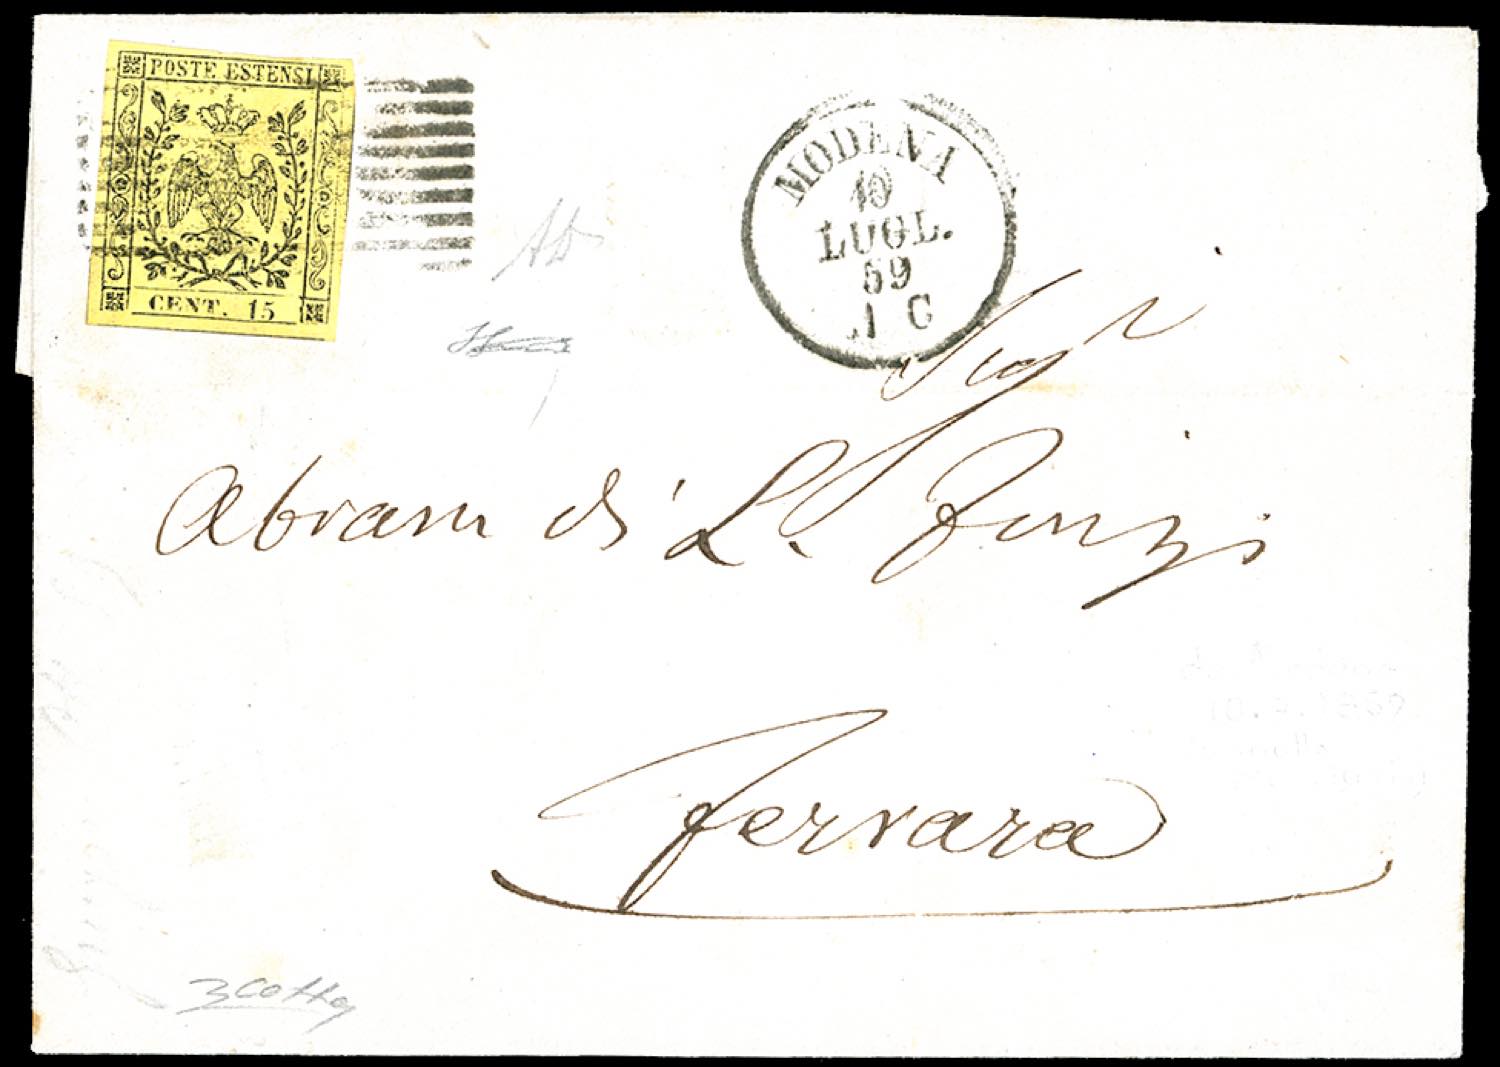 POSTE ESTENSI
CENT. 15
MODENA
10
LUGL.
59
1 C
Sig.r
Abram di L. Finzi
Ferrara
10.7.1859